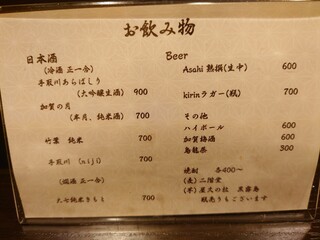 お飲み物
日本酒
(冷酒 正一合)
手取川あらばしり
(大吟醸生酒) 900
加賀の月
(半月、純米酒) 700
竹葉 純米 700
手取川 (niji) 700
(燗酒 正一合)
大七純米きもと 700
Beer
Asahi 熟撰(生中) 600
kirinラガー(瓶) 700
その他
ハイボール 600
加賀梅酒 600
烏龍茶 300
焼酎 各400〜
(麦) 二階堂
(芋) 屋久の杜 黒霧島
瓶売りもございます